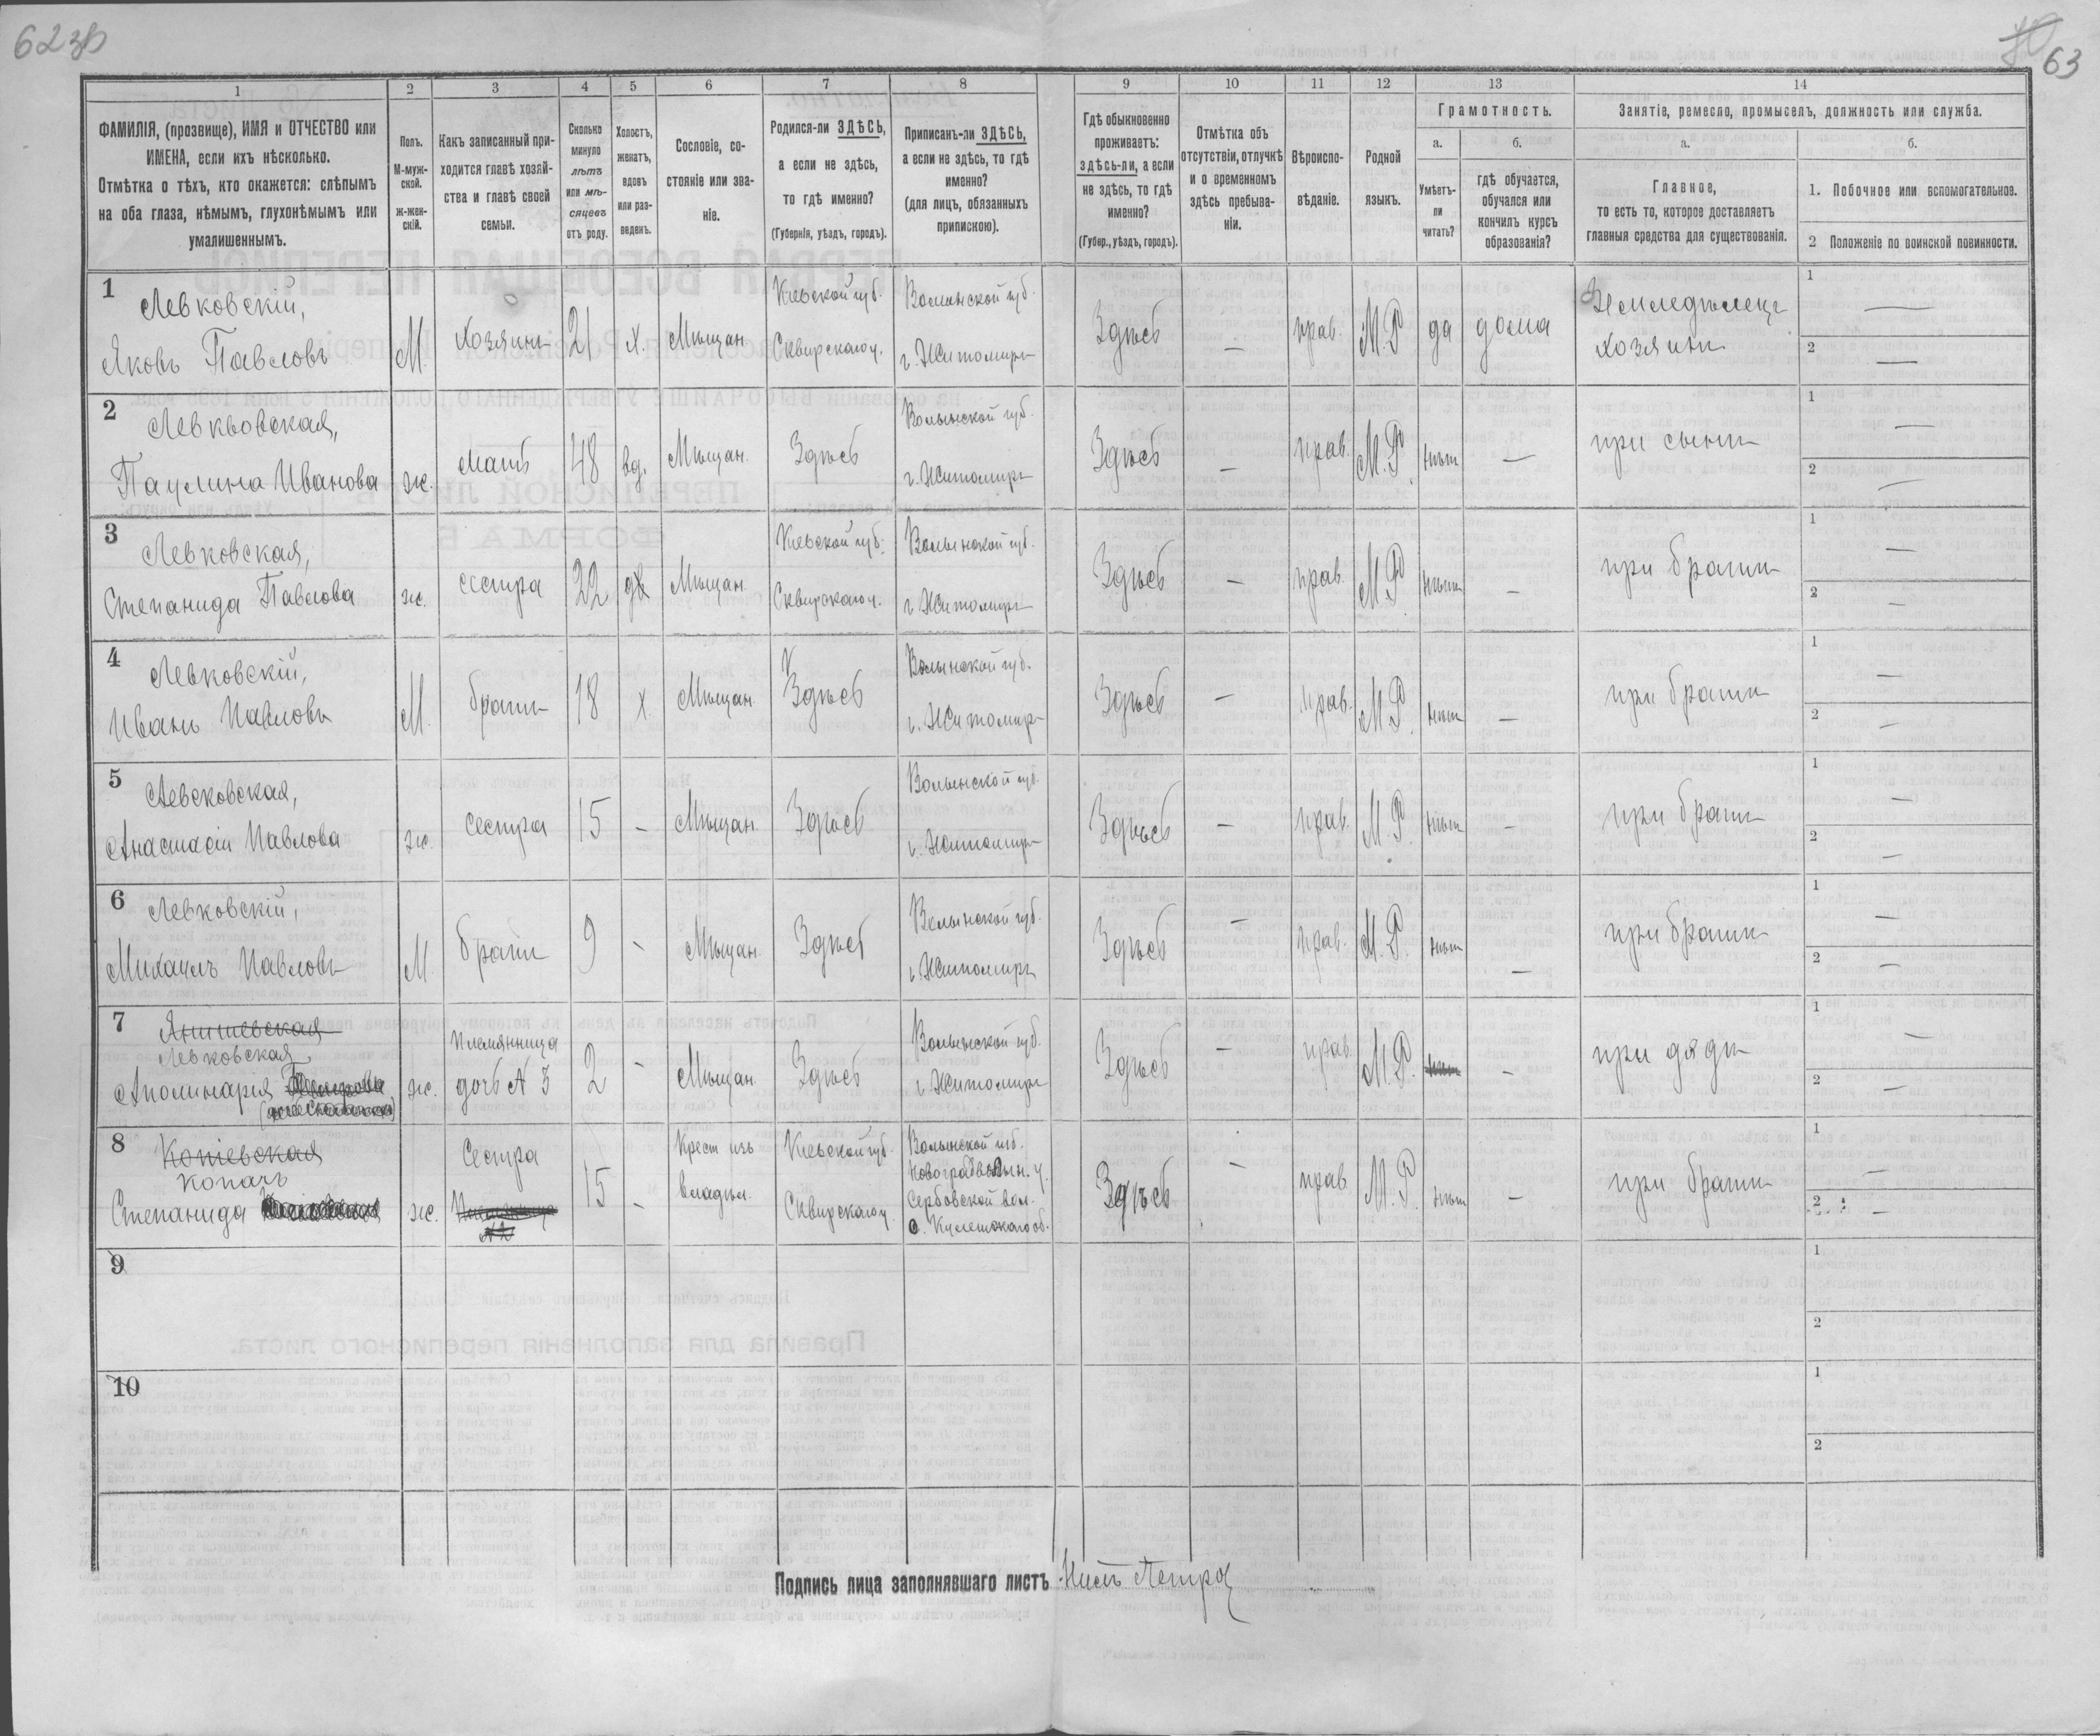 62 зв
63
1
2
3
4
5
6
7
8
9
10
11
12
13
14
ФАМИЛІЯ, (прозвище), ИМЯ и ОТЧЕСТВО или
ИМЕНА, если ихъ нѣсколько.
Отмѣтка о тѣхъ, кто окажется: слѣпымъ
на оба глаза, нѣмымъ, глухонѣмымъ или
умалишеннымъ.
Полъ.
М-муж-
ской.
ж-жен-
скій.
Какъ записанный при-
ходится главѣ хозяй-
ства и главѣ своей
семьи.
Сколько
минуло
лѣтъ
или мѣ-
сяцевъ
отъ роду.
Холостъ,
женатъ,
вдовъ
или раз-
веденъ.
Сословіе, со-
стояніе или зва-
ніе.
Родился-ли ЗДѢСЬ,
а если не здѣсь,
то гдѣ именно?
(Губернія, уѣздъ, городъ).
Приписанъ-ли ЗДѢСЬ,
а если не здѣсь, то гдѣ
именно?
(для лицъ, обязанныхъ
припискою).
Гдѣ обыкновенно
проживаетъ:
здѣсь-ли, а если
не здѣсь, то гдѣ
именно?
(Губер., уѣздъ, городъ).
Отмѣтка объ
отсутствіи, отлучкѣ
и о временномъ
здѣсь пребыва-
ніи.
Вѣроиспо-
вѣданіе.
Родной
языкъ.
Грамотность.
а.
Умѣетъ-
ли
читать?
б.
гдѣ обучается,
обучался или
кончилъ курсъ
образованія?
Занятіе, ремесло, промыселъ, должность или служба.
а.
Главное,
то есть то, которое доставляетъ
главныя средства для существованія.
б.
1. Побочное или вспомогательное.
2 Положеніе по воинской повинности.
1
Левковскій,
Яковъ Павловъ
М.
Хозяинъ
21
х.
Мѣщан.
Кіевской губ.
Сквирскаго у.
Волынской губ.
г. Житомиръ
Здѣсь
—
прав.
М.Р
да
дома
Земледѣлецъ
хозяинъ
1 —
2 —
2
Левковская,
Паулина Иванова
ж.
мать
48
вд.
Мѣщан.
Здѣсь
Волынской губ.
г. Житомиръ
Здѣсь
—
прав.
М.Р.
нѣтъ
—
при сынѣ
1 —
2 —
3
Левковская,
Степанида Павлова
ж.
сестра
22
Мѣщан.
Кіевской губ.
Сквирскаго у.
Волынской губ.
г. Житомиръ
Здѣсь
—
прав.
М.Р.
нѣтъ
—
при братѣ
1 —
2 —
4
Левковскій,
Иванъ Павловъ
М.
братъ
18
х
Мѣщан.
Здѣсь
Волынской губ.
г. Житомиръ
Здѣсь
—
прав.
М.Р.
нѣтъ
—
при братѣ
1 —
2 —
5
Левковская,
Анастасія Павлова
ж.
сестра
15
—
Мѣщан.
Здѣсь
Волынской губ.
г. Житомиръ
Здѣсь
—
прав.
М.Р.
нѣтъ
—
при братѣ
1 —
2 —
6
Левковскій,
Михаилъ Павловъ
М.
братъ
9
-
Мѣщан.
Здѣсь
Волынской губ.
г. Житомиръ
Здѣсь
—
прав.
М.Р.
нѣтъ
—
при братѣ
1 —
2 —
7
Левковская
Аполинарія
ж.
племянница
дочь № 3
2
-
Мѣщан.
Здѣсь
Волынской губ.
г. Житомиръ
Здѣсь
—
прав
М.Р.
нѣтъ
—
при дядѣ
1 —
2 —
8
Копачъ
Степанида
ж.
Сестра
15
-
Крест. изъ
владѣл.
Кіевской губ.
Сквирскаго у.
Волынской губ.
Новоградволын. у.
Сербовской вол.
Здѣсь
—
прав
М.Р.
нѣтъ
—
при братѣ
1 —
2 —
9
1
2
10
1
2
Подпись лица заполнявшаго листъ